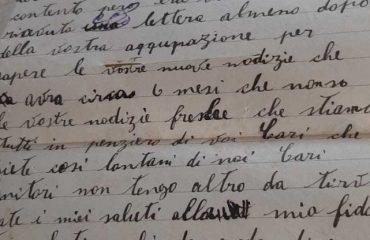 contento però
riavuta una lettera almeno dopo
della vostra aggupazione per
sapere le vostre nuove nodizie che
avra circa 6 mesi che nonso
le vostre nodizie che stiamo
tutti in penziero di voi Cari che
siete cosi lontani di noi Cari
Genitori non tengo altro da tirvi
fate i miei saluti alla mia fida